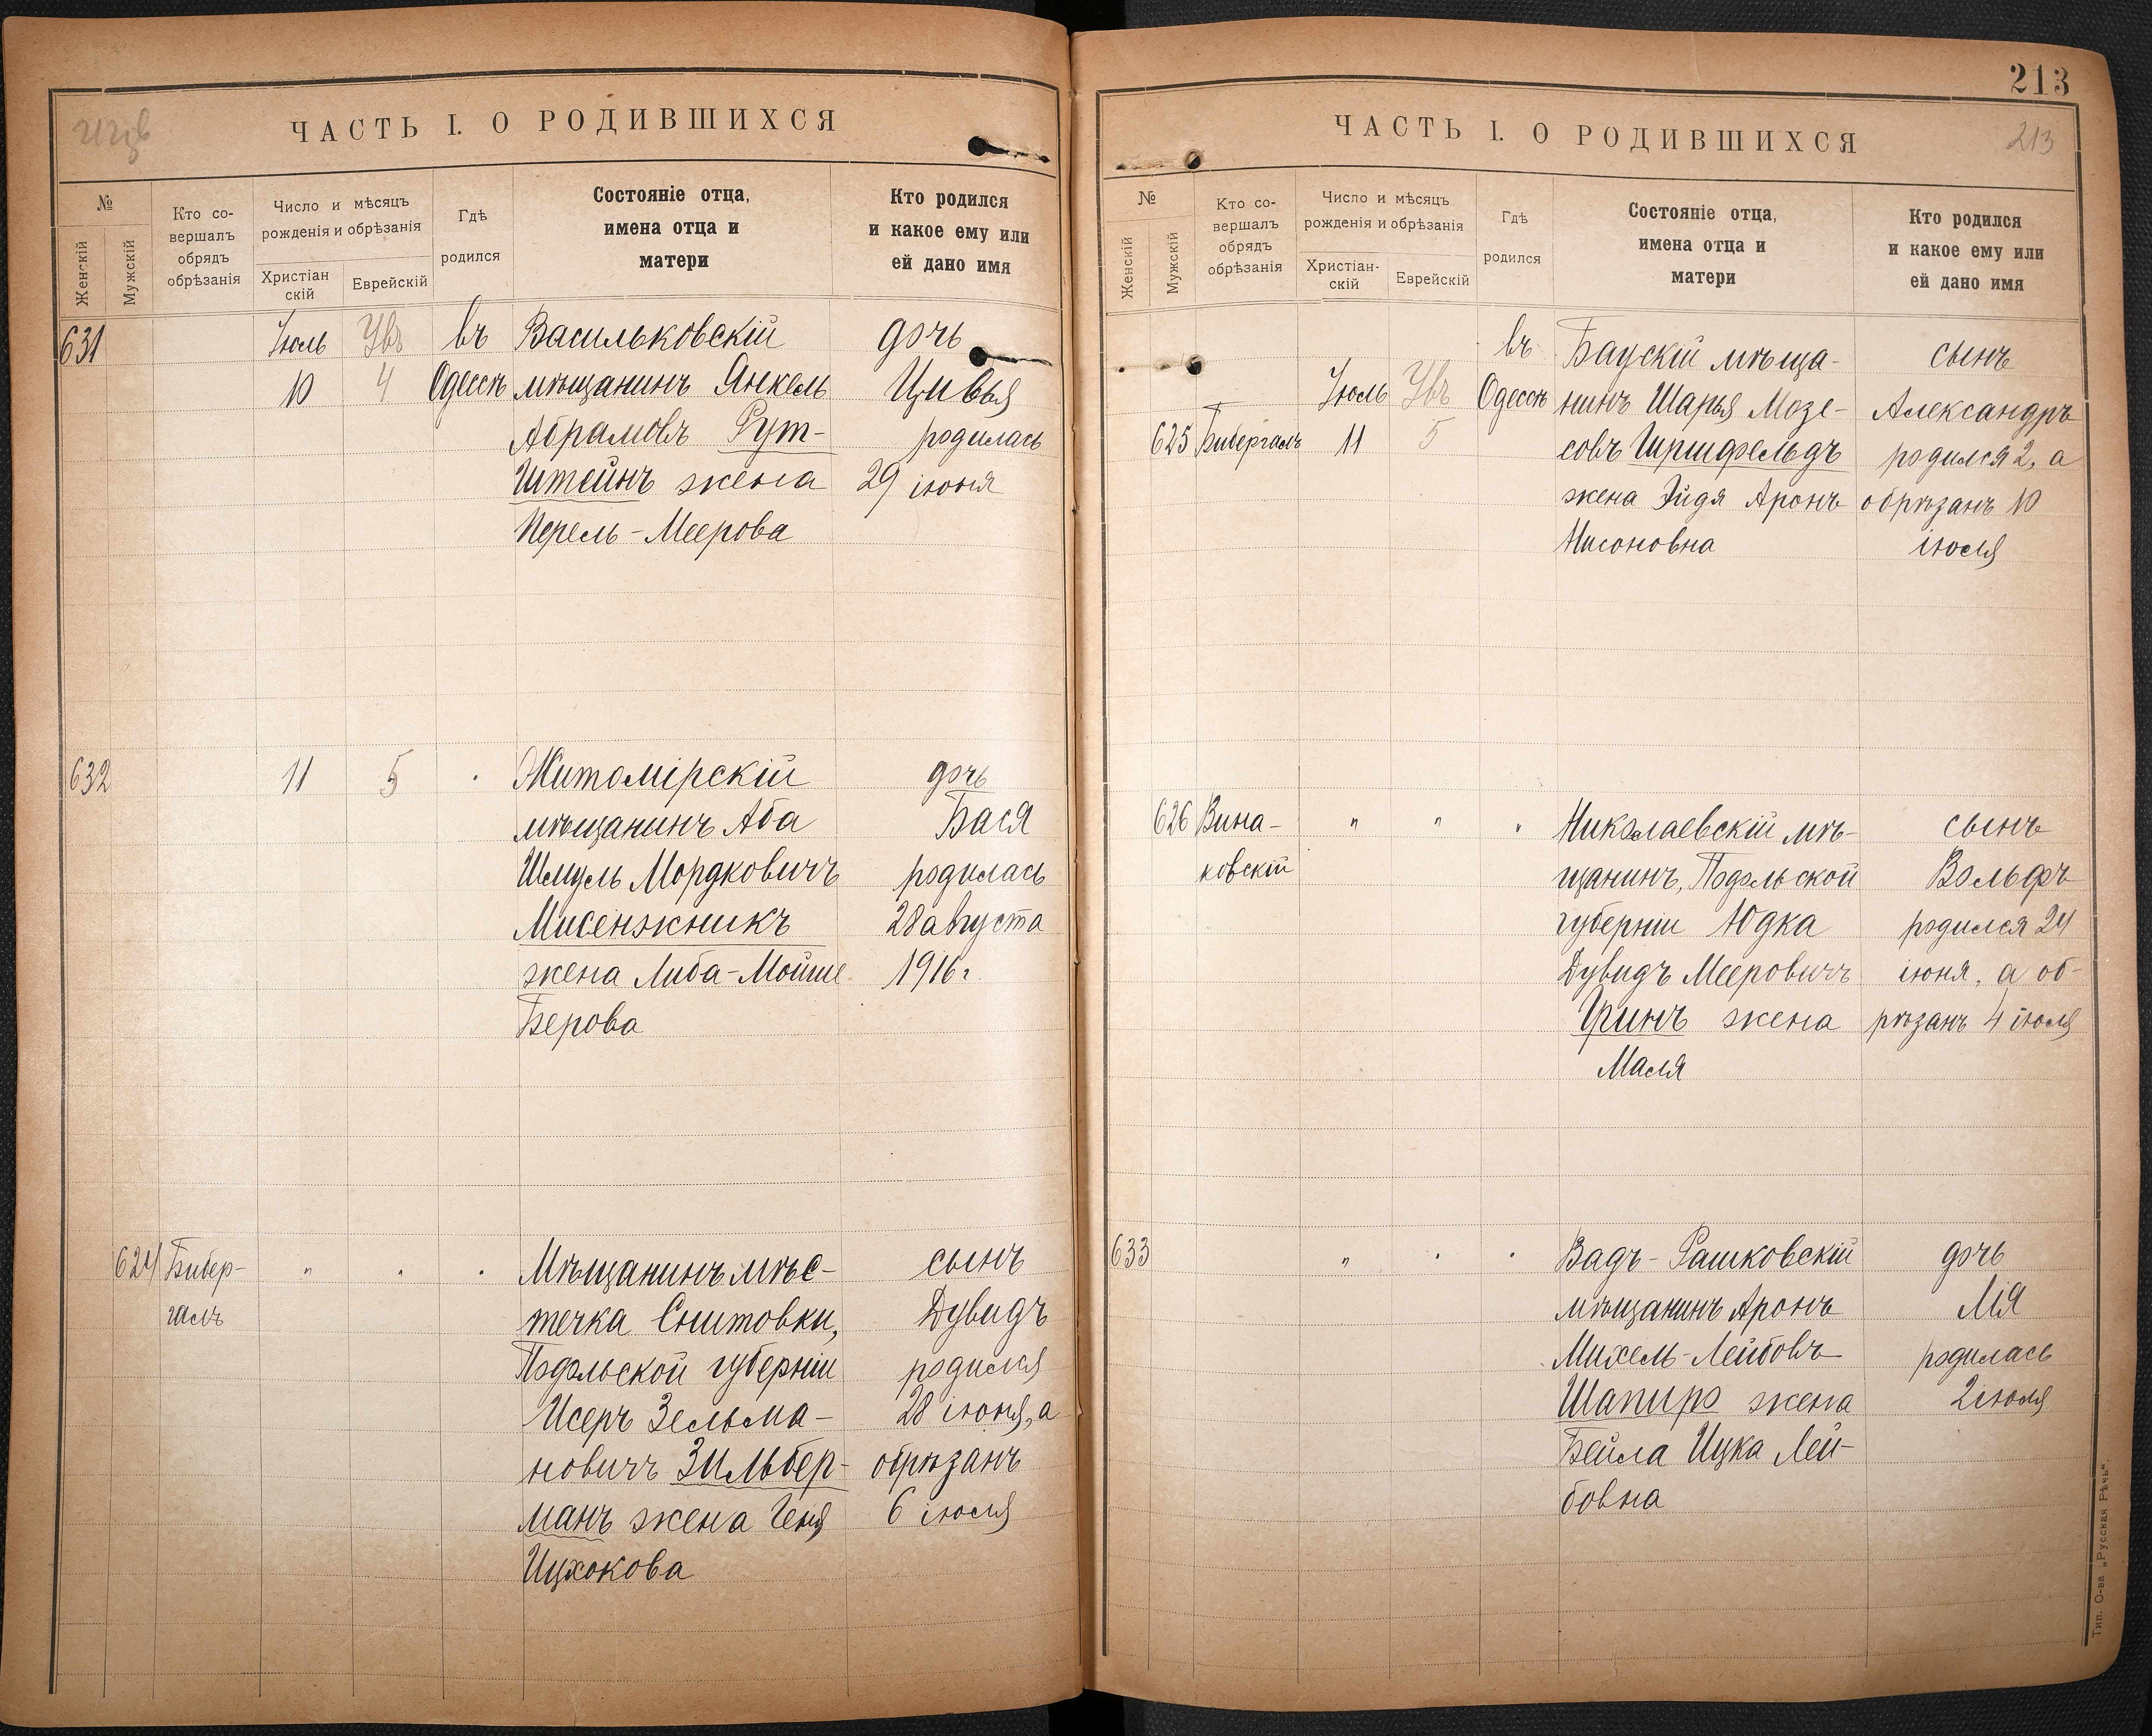 ЧАСТЬ I. О РОДИВШИХСЯ
№
Женскій
Мужскій
Кто со-
вершалъ
обрядъ
обрѣзанія
Число и мѣсяцъ
рожденія и обрѣзанія
Христіан
скій
Еврейскій
Гдѣ
родился
Состояніе отца,
имена отца и
матери
Кто родился
и какое ему или
ей дано имя
631 Іюль въ Васильковскій дочь
10 4 Одессѣ мѣщанинъ Янкель Цивья
Абрамовъ Рут- родилась
штейнъ жена 29 іюня
Перель-Меерова
632 11 5 Житомірскій дочь
мѣщанинъ Аба Бася
Шмуль Мордковичъ родилась
Мисенжникъ 28 августа
жена Либа-Мойше 1916 г
Берова
624 Бибер- " " " Мѣщанинъ мѣс- сынъ
галъ течка Снитовки, Дувидъ
Подольской губерніи родился
Исеръ Зельма- 28 іюня, а
новичъ Зильбер- обрѣзанъ
манъ жена Геня 6 іюля
Ицхокова
213
ЧАСТЬ I. О РОДИВШИХСЯ 213
№
Женскій
Мужскій
Кто со-
вершалъ
обрядъ
обрѣзанія
Число и мѣсяцъ
рожденія и обрѣзанія
Христіан-
скій
Еврейскій
Гдѣ
родился
Состояніе отца,
имена отца и
матери
Кто родился
и какое ему или
ей дано имя
въ Баускій мѣща- сынъ
Іюль Одессѣ нинъ Шарья Мозе- Александръ
625 Бибергалъ 11 5 совъ Гиршфельдъ родился 2, а
жена Эйдя Аронъ обрѣзанъ 10
Нисоновна іюля
626 Вина- " " " Николаевскій мѣ- сынъ
ковскій щанинъ, Подольской Вольфъ
губерніи Юдка родился 24
Дувидъ Мееровичъ іюня, а об-
Гринъ жена рѣзанъ 4 іюля
Маля
633 " " " Вадъ-Рашковскій дочь
мѣщанинъ Аронъ Лія
Михель-Лейбовъ родилась
Шапиро жена 2 іюля
Бейла Ицка Лей-
бовна
Тип. О-ва „Русская Рѣчь“.